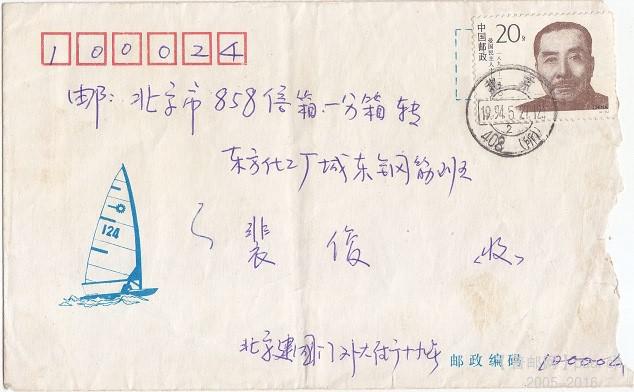 100024
中国邮政
20分
爱国民主人士
北京
19.94.5.21.12
2
408 (所)
邮: 北京市858信箱一分箱 转
东方化工厂城东钢筋班
124
裴 俊 收
北京建国门外大街
邮政编码
2005-2016